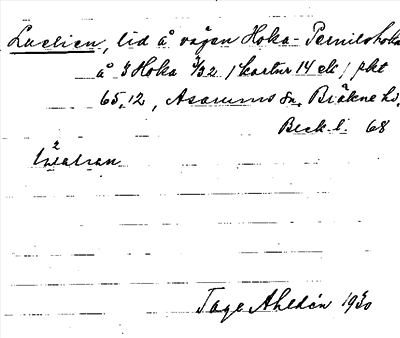 Luclien, lid å vägen Hoka - Pernilshoka
å 3 Hoka 3/32 / kartur 14 ele / pkt
65,12, Asarums sn, Bräkne hd,
Blek. l. 68
Tage Ahldén 1930